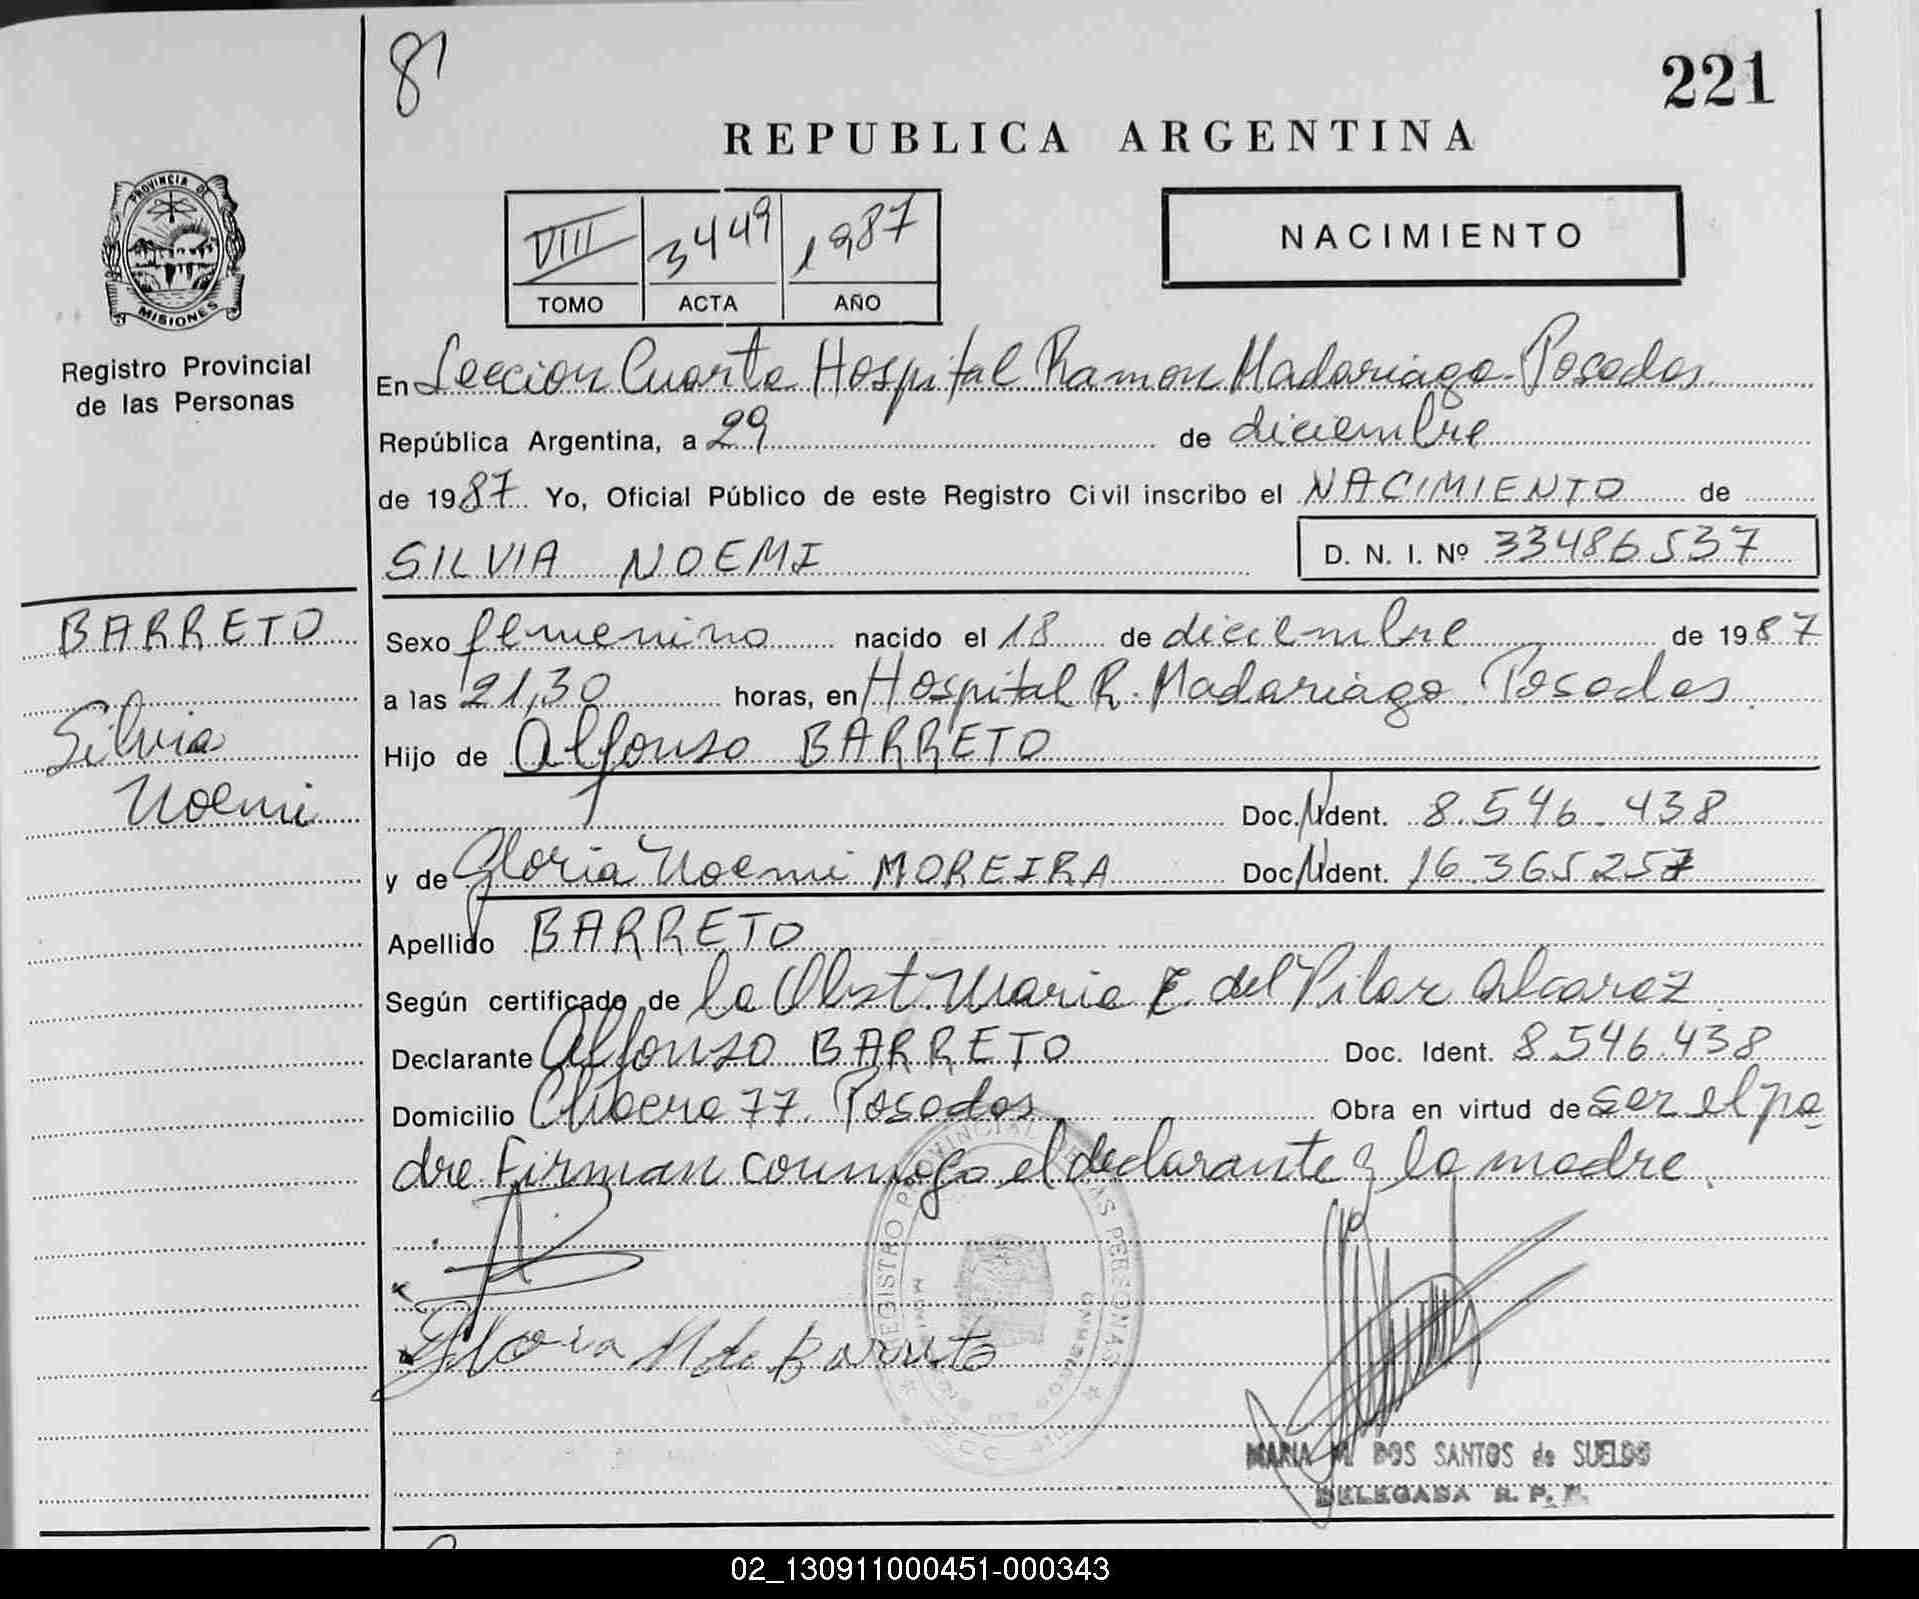 81
221
REPUBLICA ARGENTINA
PROVINCIA DE
MISIONES
Registro Provincial
de las Personas
VIII 3449 1987
TOMO ACTA AÑO
NACIMIENTO
En Seccion Cuarta Hospital Ramon Madariaga - Posadas
República Argentina, a 29 de diciembre
de 1987. Yo, Oficial Público de este Registro Civil inscribo el NACIMIENTO de
SILVIA NOEMI D. N. I. Nº 33486537
BARRETO
Silvia
Noemi
Sexo femenino nacido el 18 de diciembre de 1987
a las 21,30 horas, en Hospital R. Madariaga. Posadas
Hijo de Alfonso BARRETO
Doc. Ident. 8.546.438
y de Gloria Noemi MOREIRA Doc. Ident. 16.365.257
Apellido BARRETO
Según certificado de la Obst. Maria E. del Pilar Alcaraz
Declarante Alfonso BARRETO Doc. Ident. 8.546.438
Domicilio 77. Posadas Obra en virtud de ser el pa
dre. Firman conmigo el declarante y la madre.
REGISTRO PROVINCIAL DE LAS PERSONAS
Gloria M de Barreto
MARIA M. DOS SANTOS de SUELDO
DELEGADA R. P. P.
02_130911000451-000343